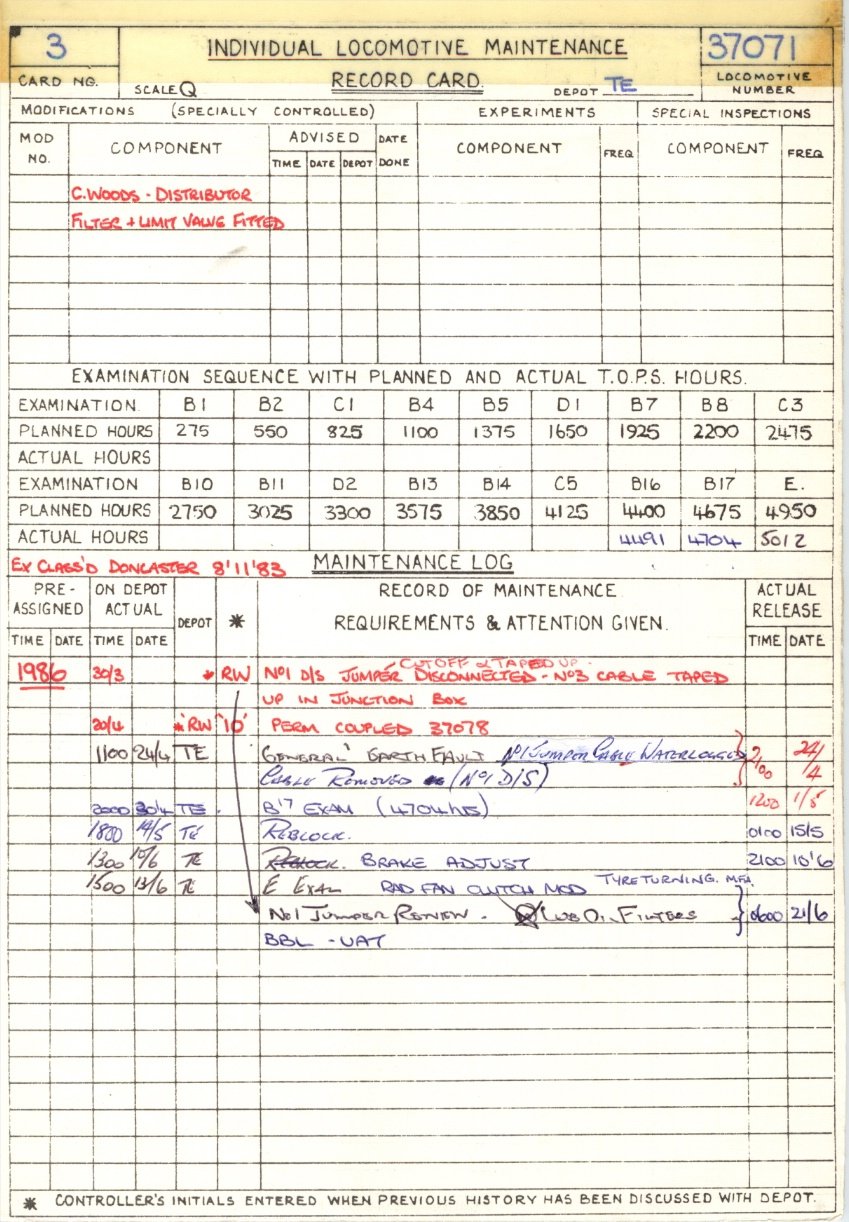 3 INDIVIDUAL LOCOMOTIVE MAINTENANCE 37071
CARD NO. SCALE Q RECORD CARD DEPOT TE LOCOMOTIVE NUMBER
MODIFICATIONS (SPECIALLY CONTROLLED) EXPERIMENTS SPECIAL INSPECTIONS
MOD NO. COMPONENT ADVISED DATE DONE COMPONENT FREQ COMPONENT FREQ
TIME DATE DEPOT
C.WOODS - DISTRIBUTOR
FILTER + LIMIT VALVE FITTED
EXAMINATION SEQUENCE WITH PLANNED AND ACTUAL T.O.P.S. HOURS.
EXAMINATION B1 B2 C1 B4 B5 D1 B7 B8 C3
PLANNED HOURS 275 550 825 1100 1375 1650 1925 2200 2475
ACTUAL HOURS
EXAMINATION B10 B11 D2 B13 B14 C5 B16 B17 E.
PLANNED HOURS 2750 3025 3300 3575 3850 4125 4400 4675 4950
ACTUAL HOURS 4491 4704 5012
EX CLASS'D DONCASTER 8'11'83 MAINTENANCE LOG
PRE-ASSIGNED ON DEPOT ACTUAL DEPOT * RECORD OF MAINTENANCE ACTUAL RELEASE
REQUIREMENTS & ATTENTION GIVEN.
TIME DATE TIME DATE TIME DATE
CUT OFF & TAPED UP.
1986 30/3 * RW NO1 D/S JUMPER DISCONNECTED - NO3 CABLE TAPED
UP IN JUNCTION BOX
20/4 * RW '10' PERM COUPLED 37078
1100 24/4 TE 'GENERAL' EARTH FAULT NO1 JUMPER CABLE WATERLOGGED 2100 24/4
CABLE REMOVED (NO1 D/S)
2000 30/4 TE. B'17 EXAM (4704 hrs) 1200 1/5
1800 14/5 TE REBLOCK. 0100 15/5
1300 10/6 TE REBLOCK. BRAKE ADJUST 2100 10'6
1500 13/6 TE E EXAM RAD FAN CLUTCH MOD TYRETURNING. MFA.
NO1 JUMPER RENEW. LUB OIL FILTERS 0600 21/6
BBL - UAT
* CONTROLLER'S INITIALS ENTERED WHEN PREVIOUS HISTORY HAS BEEN DISCUSSED WITH DEPOT.